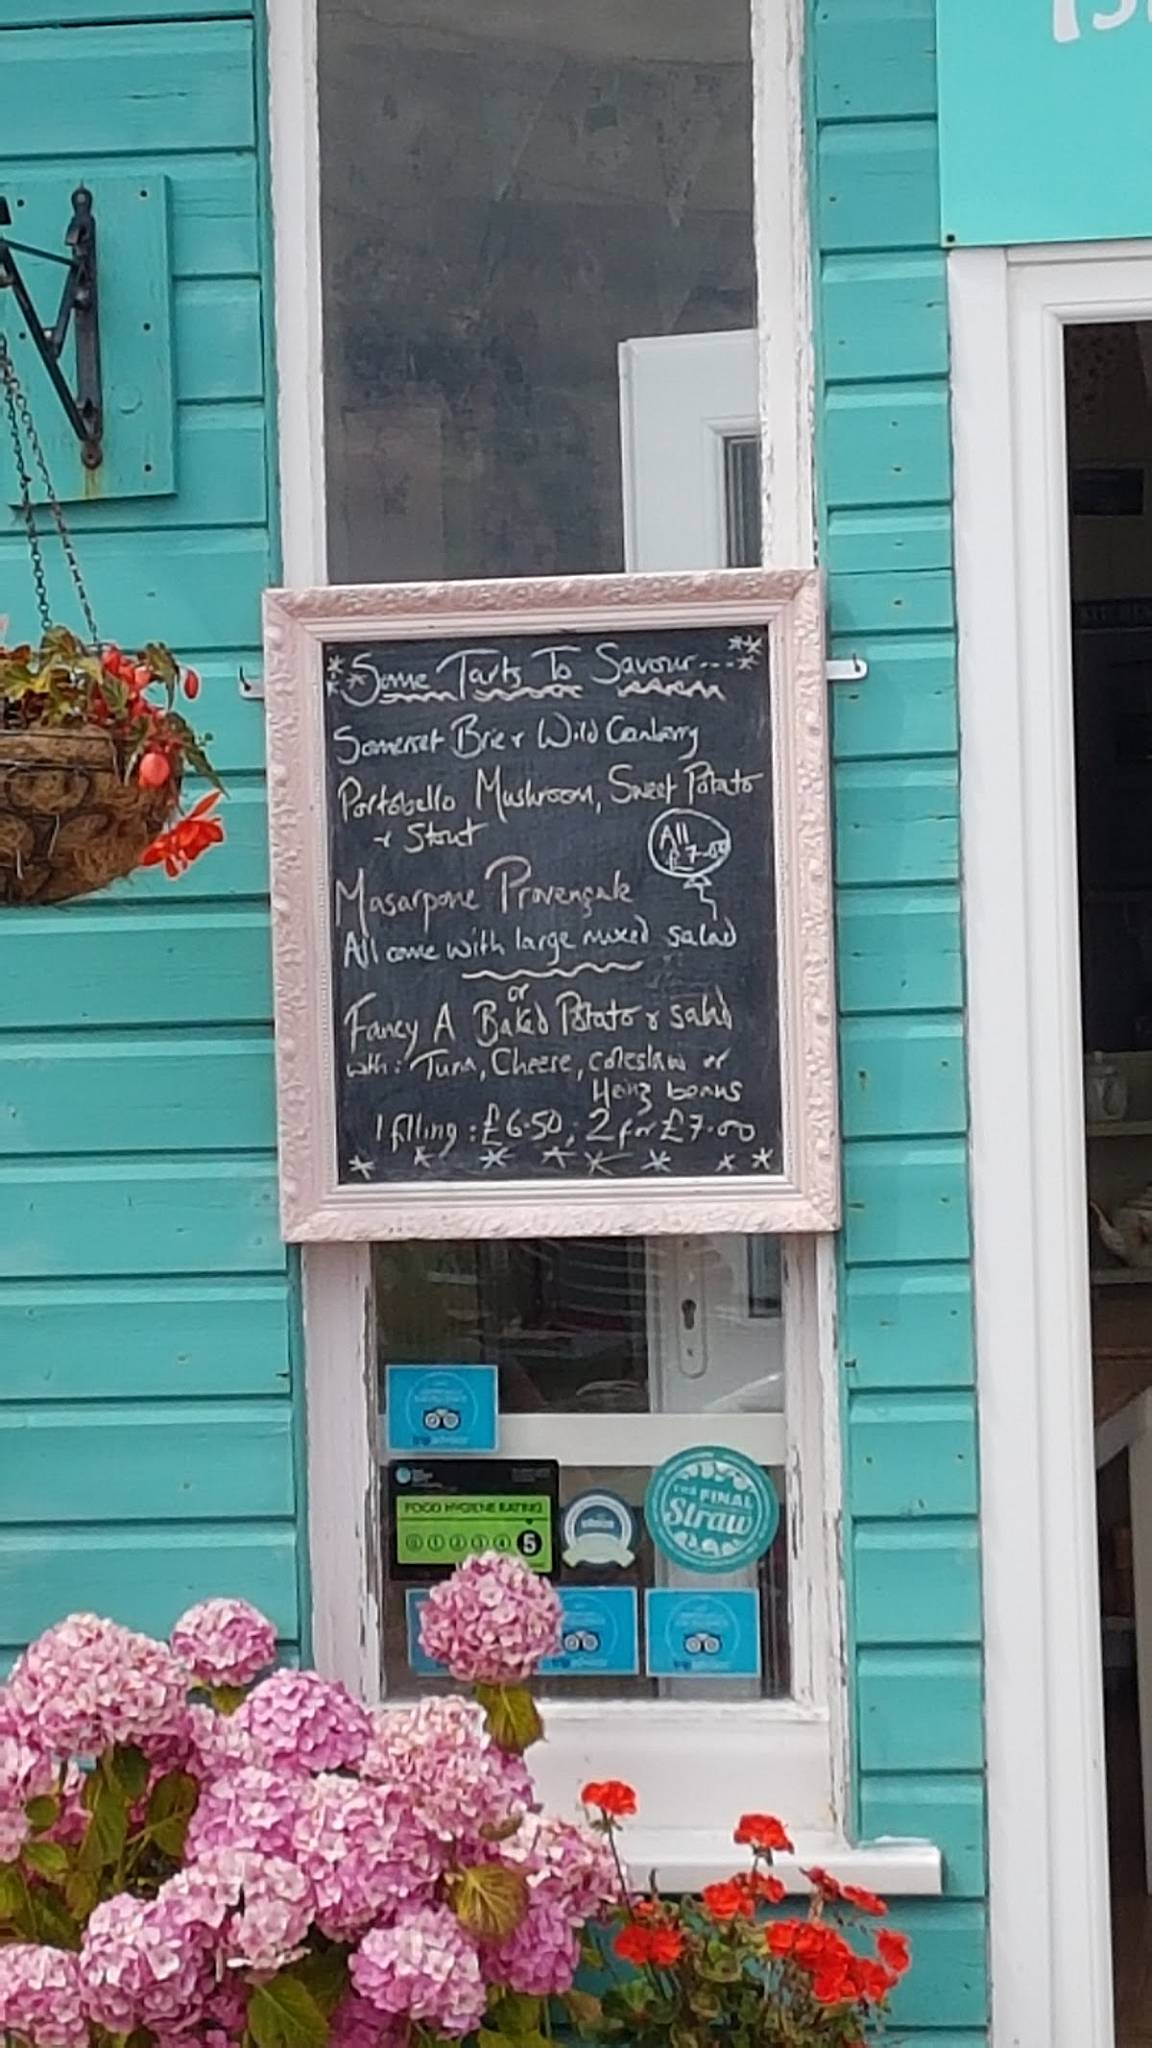 Some Tarts To Savour....
Somerset Brie + Wild Cranberry
Portobello Mushroom, Sweet Potato
+ Stout
All
£7.00
Masarpone Provençale
All come with large mixed salad
or
Fancy A Baked Potato & salad
with: Tuna, Cheese, coleslaw or
Heinz beans
1 filling: £6.50, 2 for £7.00
FOOD HYGIENE RATING
0 1 2 3 4 5
THE FINAL
Straw